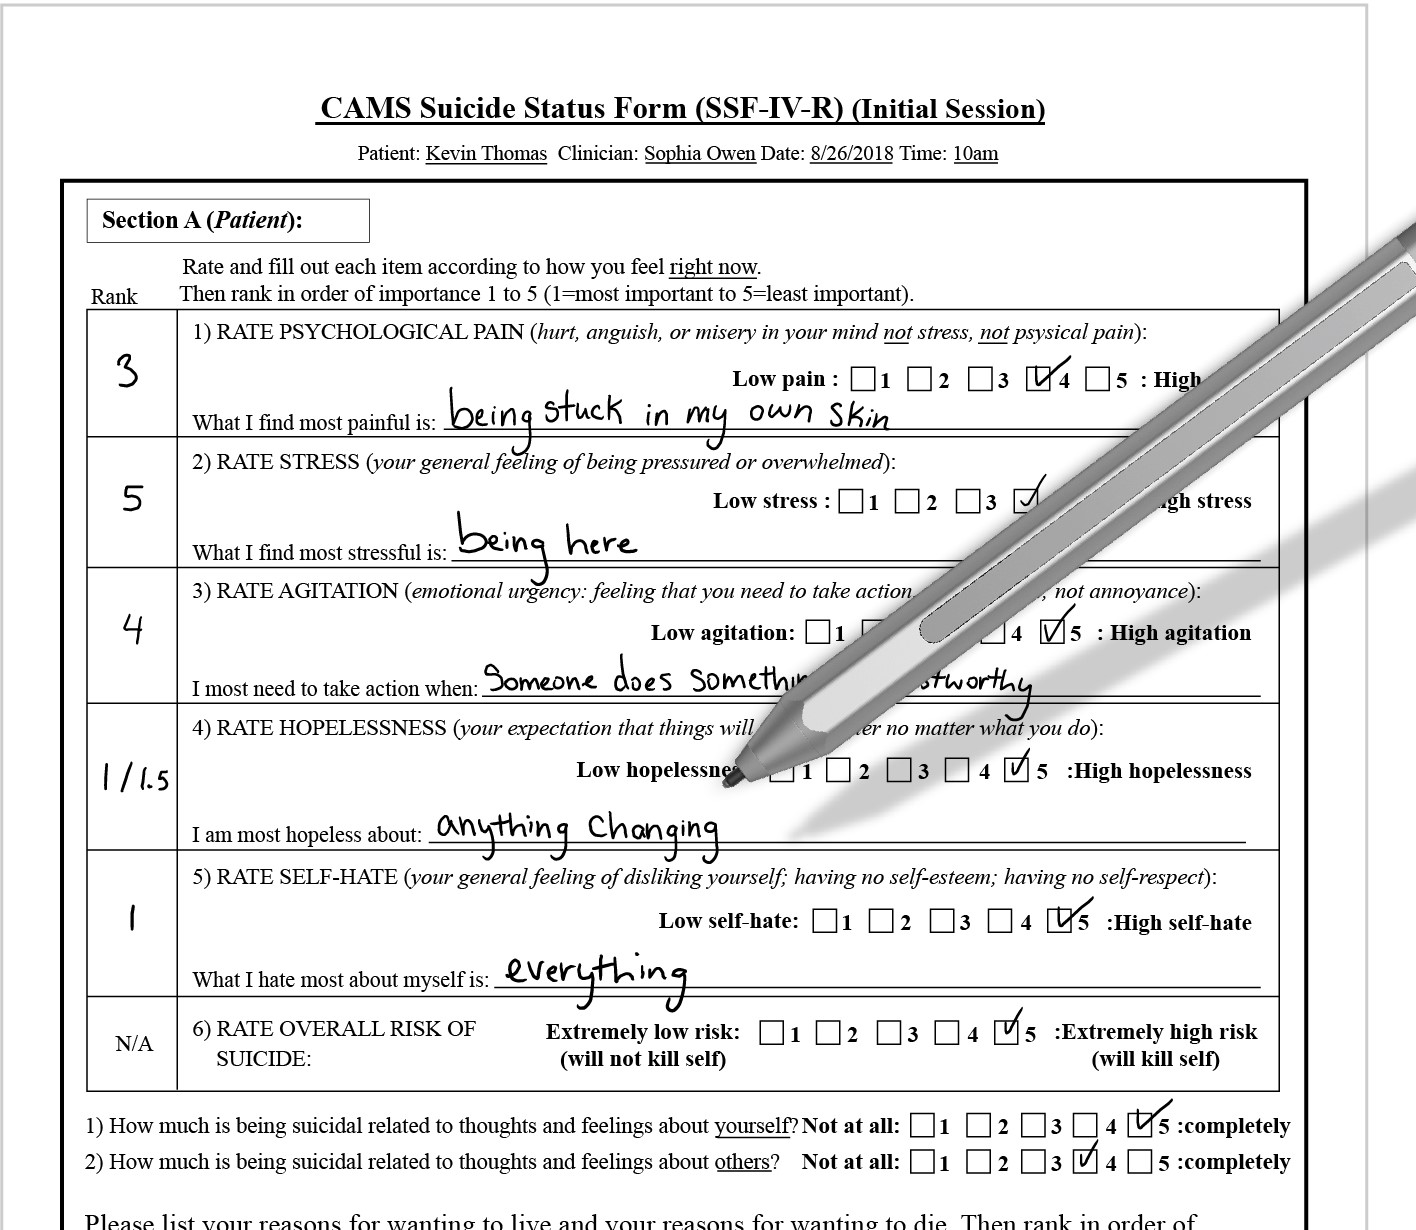 CAMS Suicide Status Form (SSF-IV-R) (Initial Session)
Patient: Kevin Thomas Clinician: Sophia Owen Date: 8/26/2018 Time: 10am
Section A (Patient):
Rate and fill out each item according to how you feel right now.
Rank Then rank in order of importance 1 to 5 (1=most important to 5=least important).
1) RATE PSYCHOLOGICAL PAIN (hurt, anguish, or misery in your mind not stress, not psysical pain):
3
Low pain : 1 2 3 4 5 : High
What I find most painful is: being stuck in my own skin
2) RATE STRESS (your general feeling of being pressured or overwhelmed):
5
Low stress : 1 2 3 stress
What I find most stressful is: being here
3) RATE AGITATION (emotional urgency: feeling that you need to take action, not annoyance):
4
Low agitation: 1 4 5 : High agitation
I most need to take action when: Someone does
4) RATE HOPELESSNESS (your expectation that things will no matter what you do):
1/1.5
Low 1 2 3 4 5 :High hopelessness
I am most hopeless about: anything Changing
5) RATE SELF-HATE (your general feeling of disliking yourself; having no self-esteem; having no self-respect):
1
Low self-hate: 1 2 3 4 5 :High self-hate
What I hate most about myself is: everything
6) RATE OVERALL RISK OF Extremely low risk: 1 2 3 4 5 :Extremely high risk
N/A
SUICIDE: (will not kill self) (will kill self)
1) How much is being suicidal related to thoughts and feelings about yourself? Not at all: 1 2 3 4 5 :completely
2) How much is being suicidal related to thoughts and feelings about others? Not at all: 1 2 3 4 5 :completely
Please list your reasons for wanting to live and your reasons for wanting to die. Then rank in order of